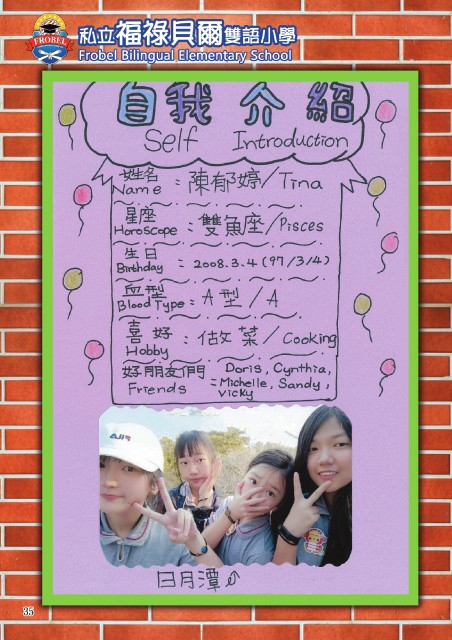 FROBEL
私立福祿貝爾雙語小學
Frobel Bilingual Elementary School
自我介紹
Self Introduction
姓名
Name : 陳郁婷/Tina
星座
Horoscope : 雙魚座/Pisces
生日
Birthday : 2008.3.4(97/3/4)
血型
Blood Type : A型/A
喜好
Hobby : 做菜/Cooking
好朋友們
Friends : Doris, Cynthia,
Michelle, Sandy,
Vicky
FILA
日月潭
35